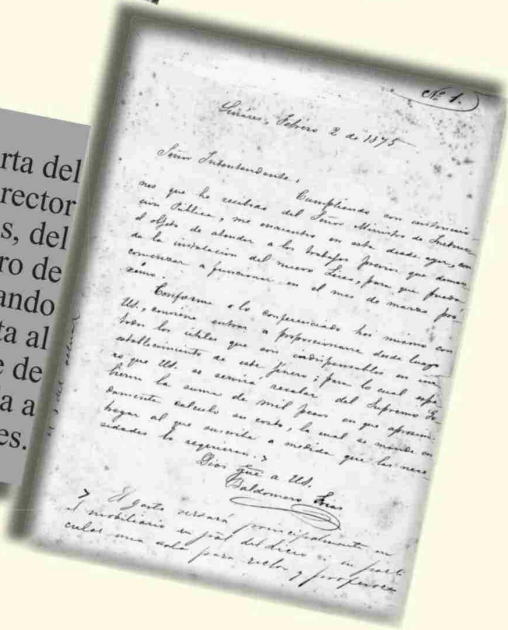 rta del
rector
s, del
ro de
ando
ta al
e de
a a
es.
Nº 1.
Linares, Febrero 2 de 1875
Señor Intentendente,
Cumpliendo con instruccio-
nes que he recibido del Señor Ministro de Instruc-
ción Pública, me encuentro en esta desde ayer con
el objeto de atender a los trabajos previos que deman-
da la instalacion del nuevo Liceo, para que pueda
comenzar a funcionar en el mes de marzo pró-
ximo.
Conforme a lo conferenciado hoi mismo con
Ud., conviene entrar a proporcionarse desde luego
todos los útiles que son indispensables en un
establecimiento de este jenero; para lo cual espe-
ro que Ud. se servirá recabar del Supremo Go-
bierno la suma de mil pesos en que aproxima-
damente calculo su costo, la cual se mande en-
tregar al que suscribe a medida que las nece-
sidades lo requieran.
Dios gue a Ud.
Baldomero Frias
El gasto versará principalmente en
el mobiliario en jral del liceo i en parti
cular una sala para rector y profesores